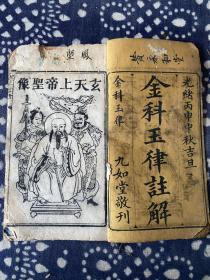 光緒丙申中秋吉旦
金科玉律註解
金科玉律
九如堂敬刊
玄天上帝聖像